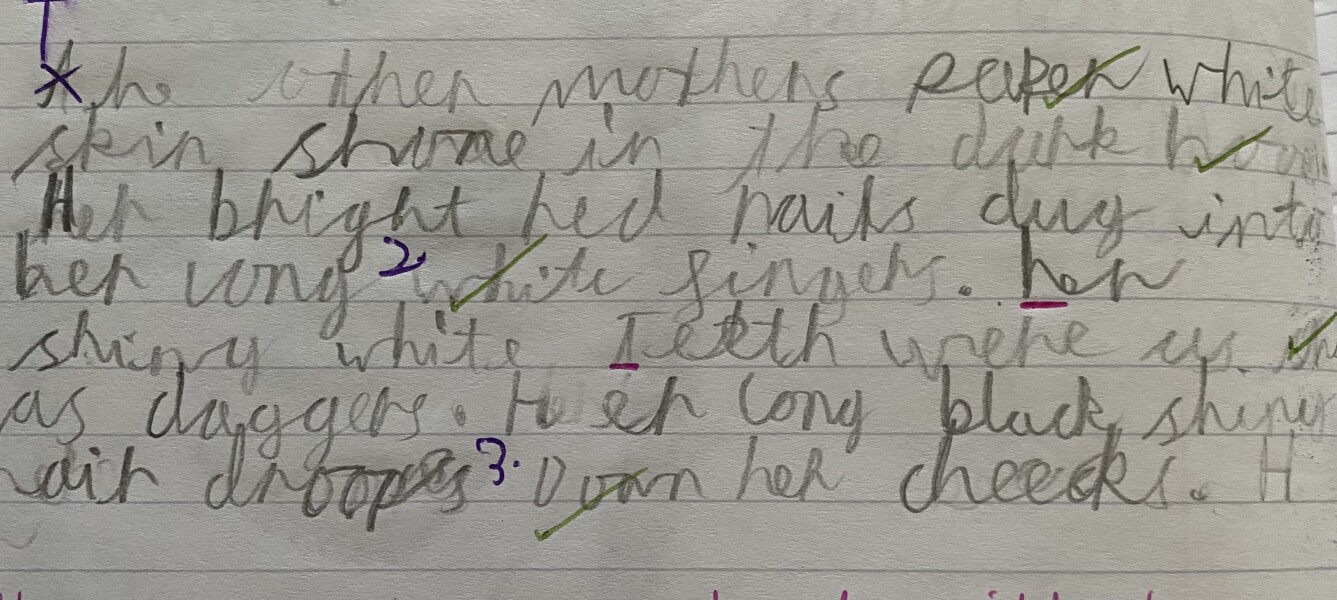 The other mothers paper white
skin shone in the dark room
Her bright red nails dug into
her long 2. white fingers. her
shiny white Teeth were as
as daggers. Her long black shiny
hair droops 3. Down her cheeks. H